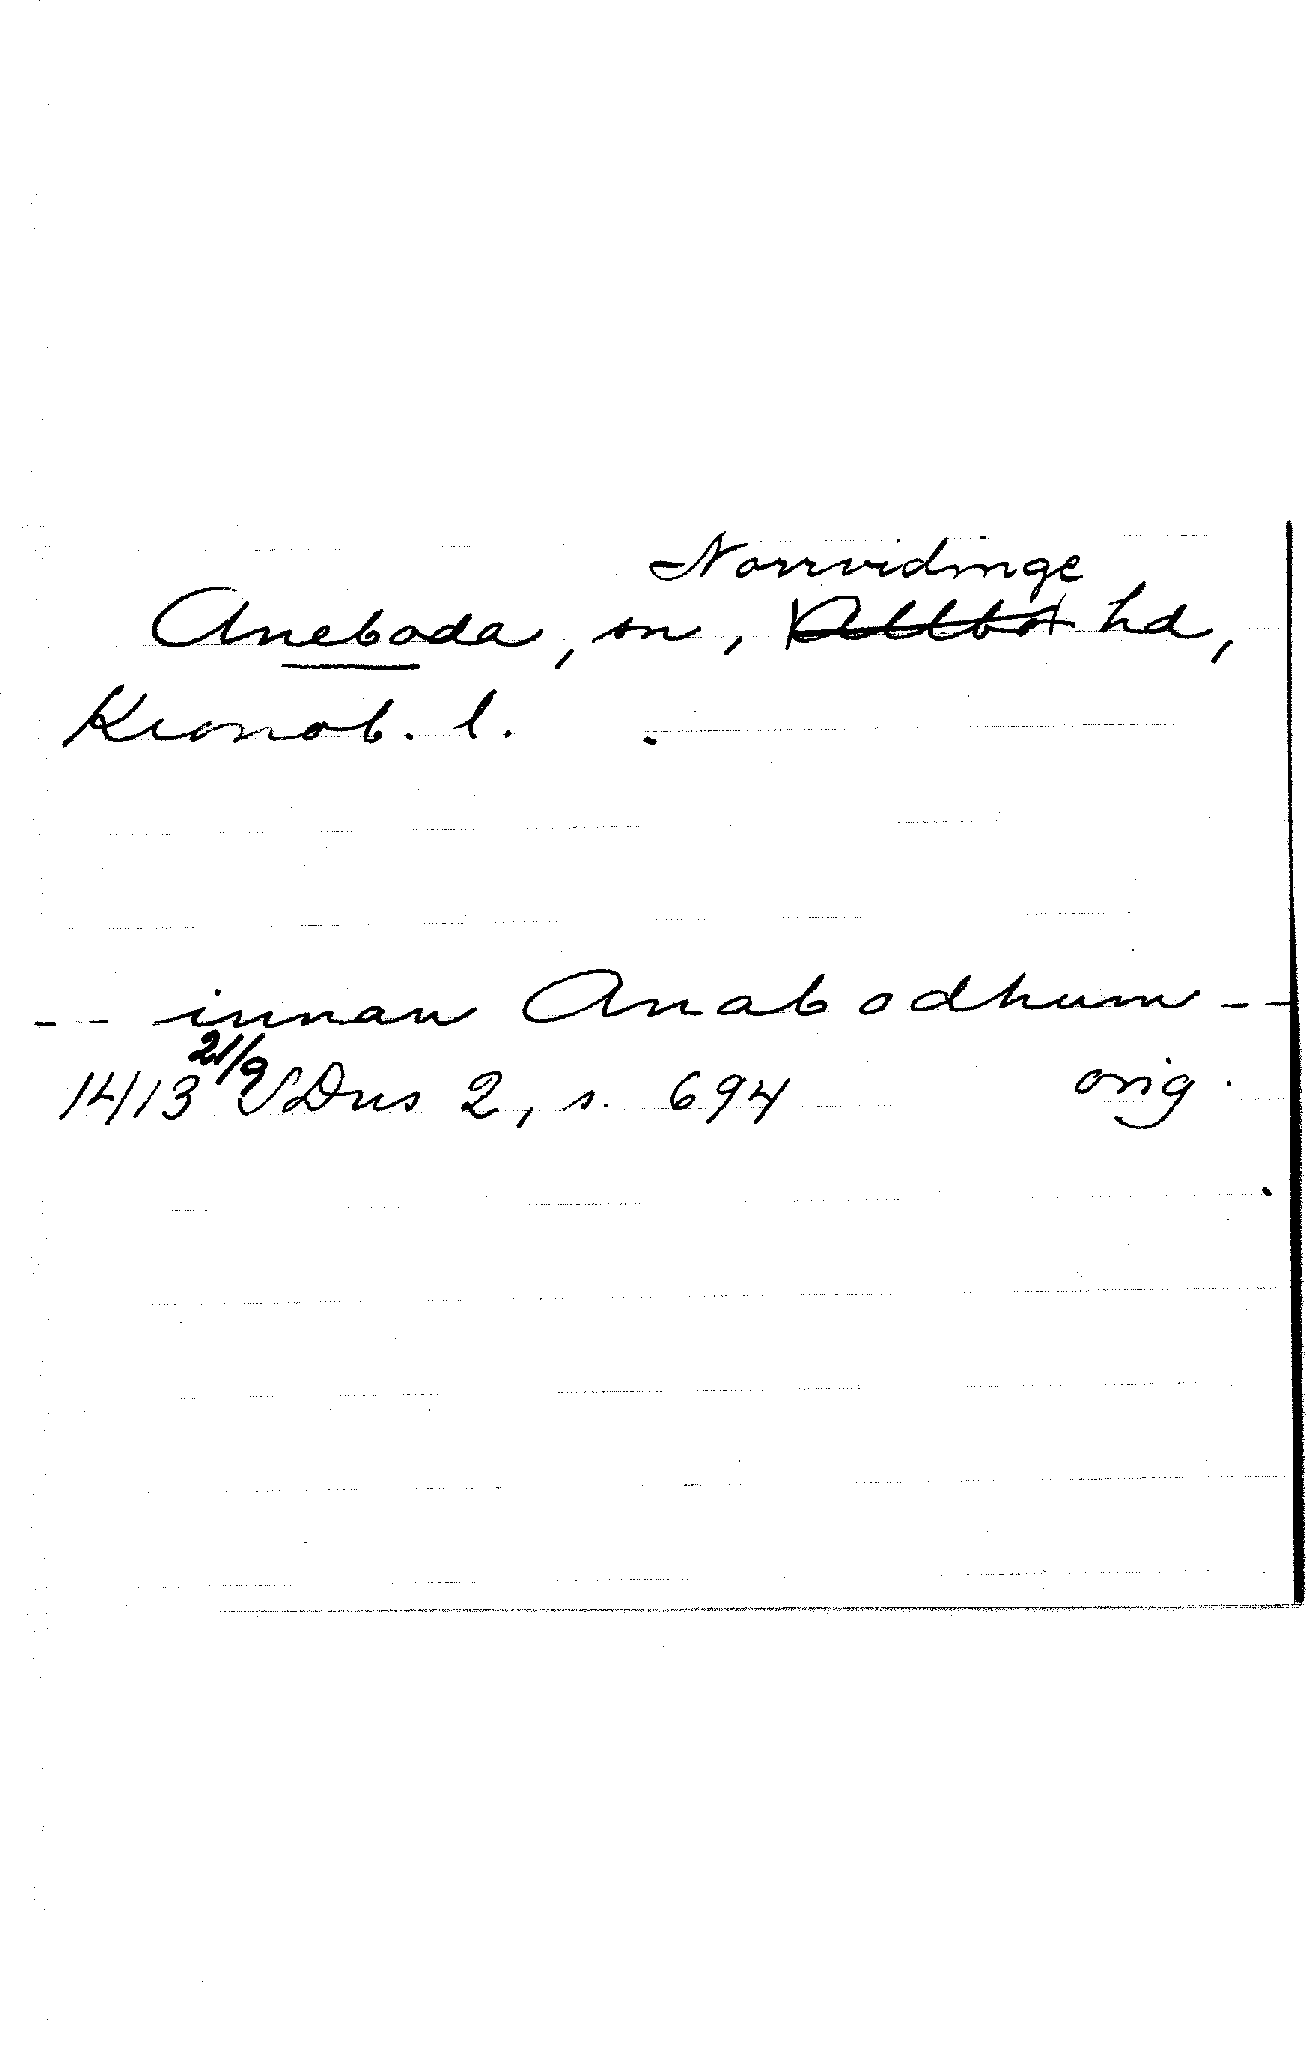 Norrvidinge
Aneboda, sn, Allbo hd,
Kronob. l.
-- innan Anabodhum --
21/9
1413 SDns 2, s. 694 orig.